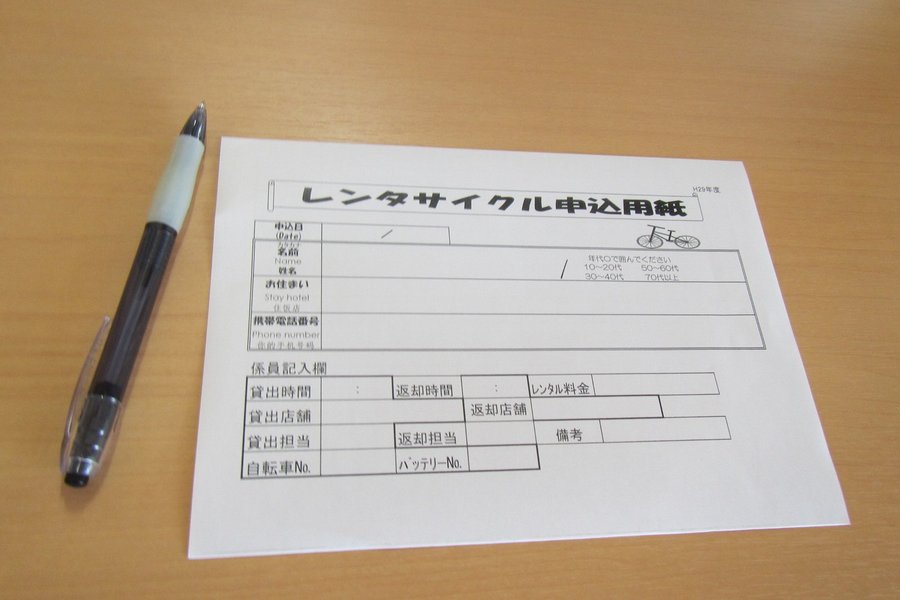 H29年度
レンタサイクル申込用紙
申込日
(Date)
/
カタカナ
名前
Name
姓名
/
年代○で囲んでください
10～20代 50～60代
30～40代 70代以上
お住まい
Stay hotel
住饭店
携帯電話番号
Phone number
你的手机号码
係員記入欄
貸出時間 : 返却時間 : レンタル料金
貸出店舗 返却店舗
貸出担当 返却担当 備考
自転車No. バッテリーNo.